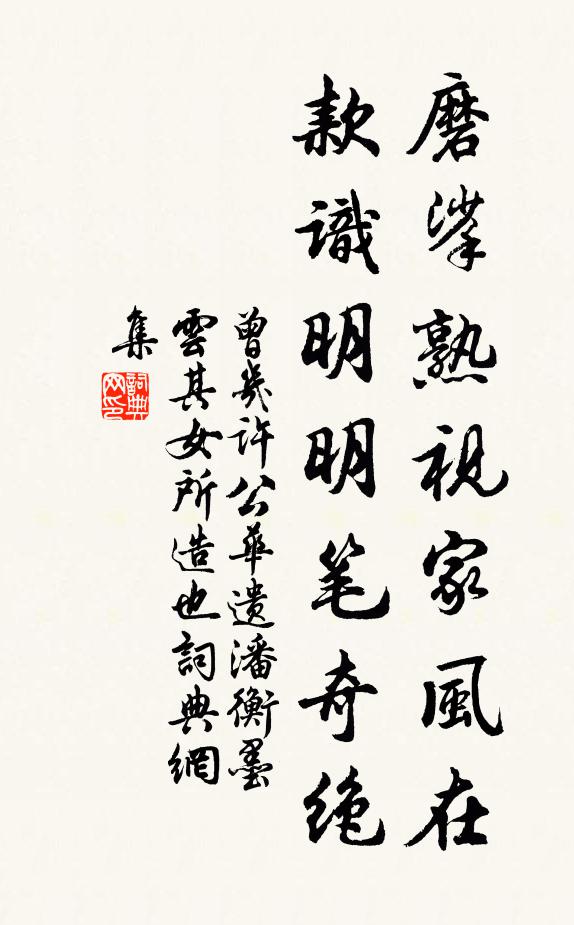 磨挲熟視家風在
款識明明笔奇绝
曾幾許公華遺潘衡墨
雲其女所造也詞典網
集
詞典網印